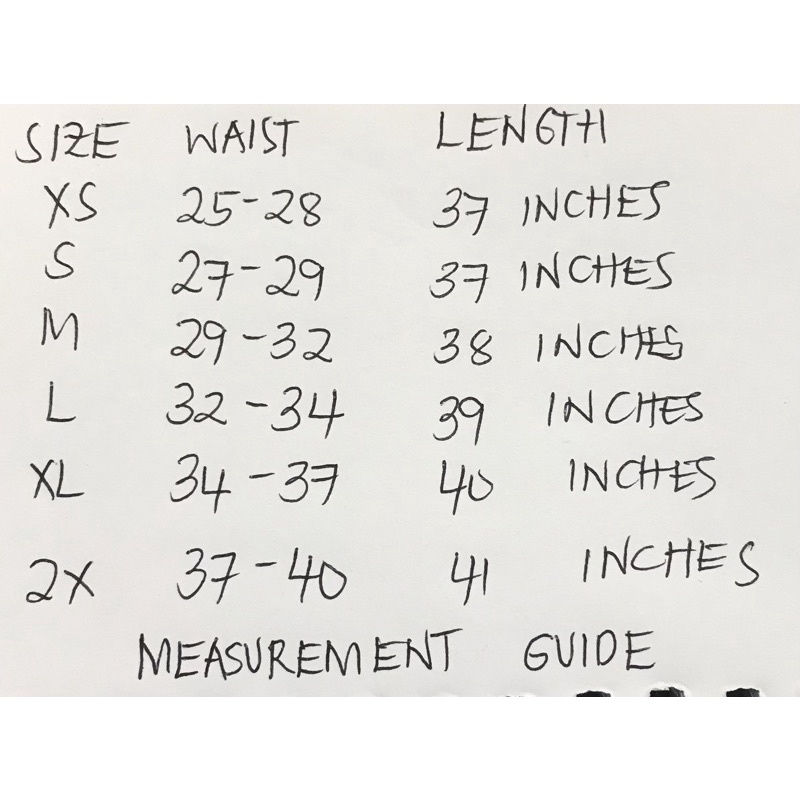 SIZE WAIST LENGTH
XS 25-28 37 INCHES
S 27-29 37 INCHES
M 29-32 38 INCHES
L 32-34 39 INCHES
XL 34-37 40 INCHES
2X 37-40 41 INCHES
MEASUREMENT GUIDE